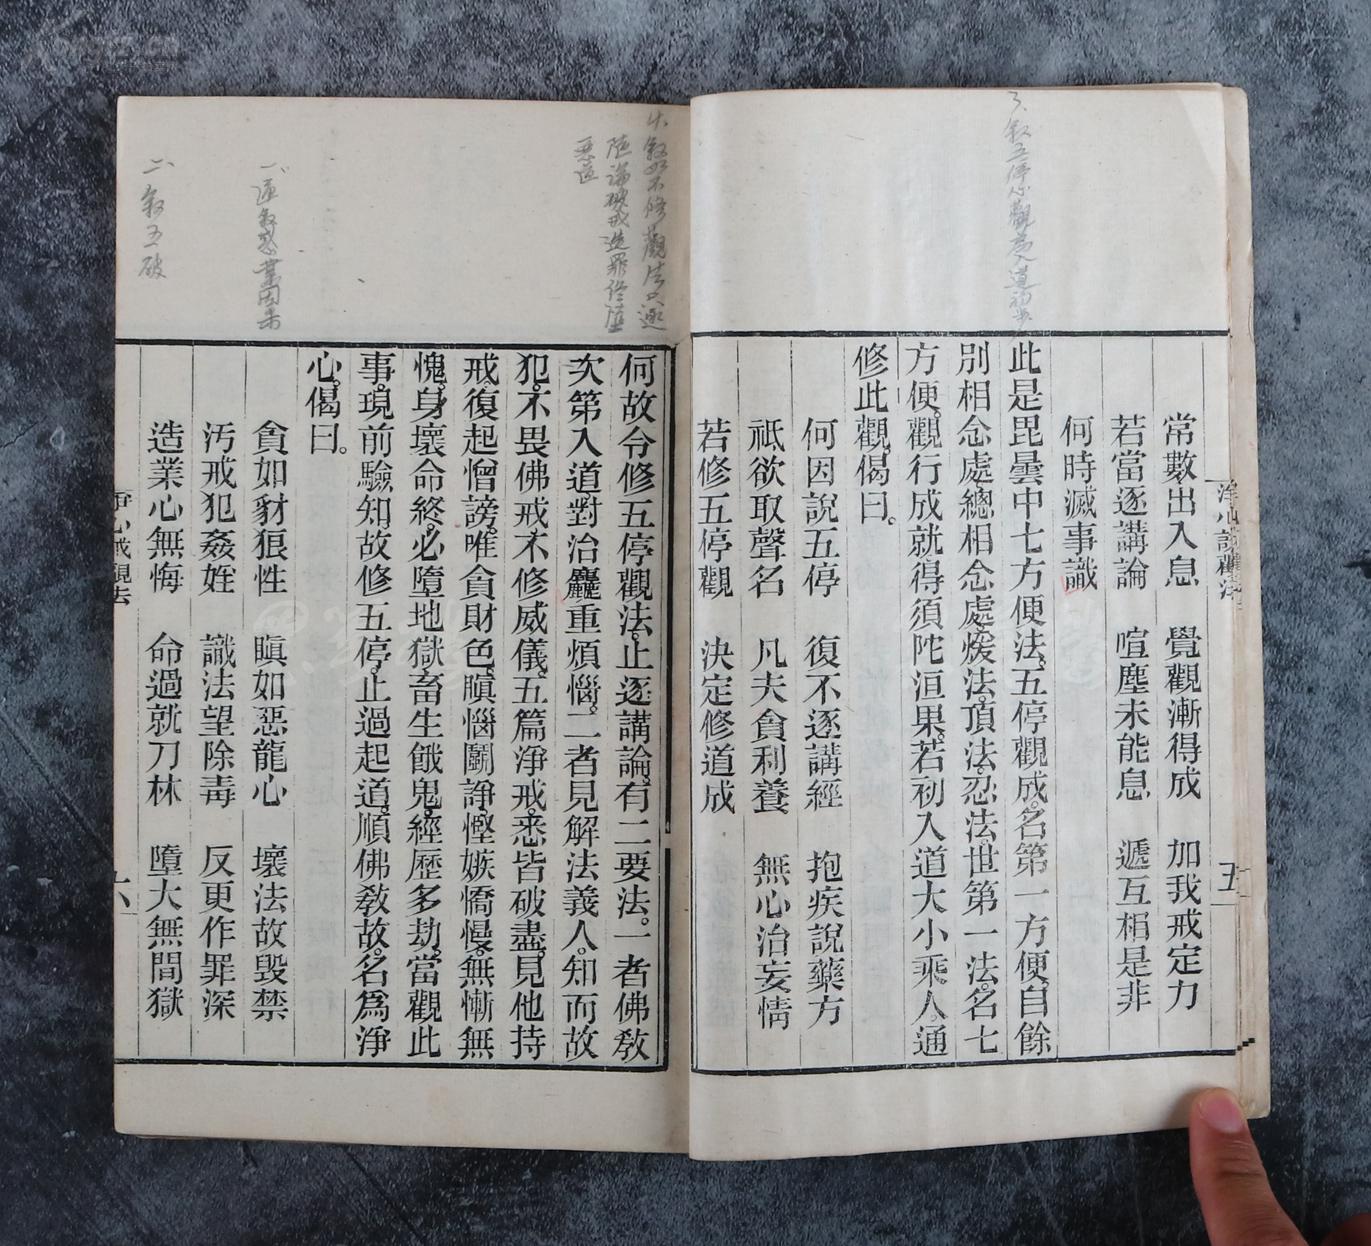 常數出入息　覺觀漸得成　加我戒定力
若當逐講論　喧塵未能息　遞互相是非
何時滅事識
此是毘曇中七方便法。五停觀成。名第一方便。自餘
別相念處。總相念處。煖法。頂法。忍法。世第一法。名七
方便。觀行成就。得須陀洹果。若初入道大小乘人。通
修此觀。偈曰。
何因說五停　復不逐講經　抱疾說藥方
祗欲取聲名　凡夫貪利養　無心治妄情
若修五停觀　決定修道成
五
何故令修五停觀法。止逐講論。有二要法。一者佛教
次第入道。對治麤重煩惱。二者見解法義人。知而故
犯。不畏佛戒。不修威儀。五篇淨戒。悉皆破盡。見他持
戒。復起憎謗。唯貪財色。瞋惱鬭諍。慳嫉憍慢。無慚無
愧。身壞命終。必墮地獄畜生餓鬼。經歷多劫。當觀此
事。現前驗知。故修五停。止過起道。順佛教故。名爲淨
心。偈曰。
貪如豺狼性　瞋如惡龍心　壞法故毀禁
污戒犯姦婬　識法望除毒　反更作罪深
造業心無悔　命過就刀林　墮大無間獄
淨心戒觀法
六
二、敘五破